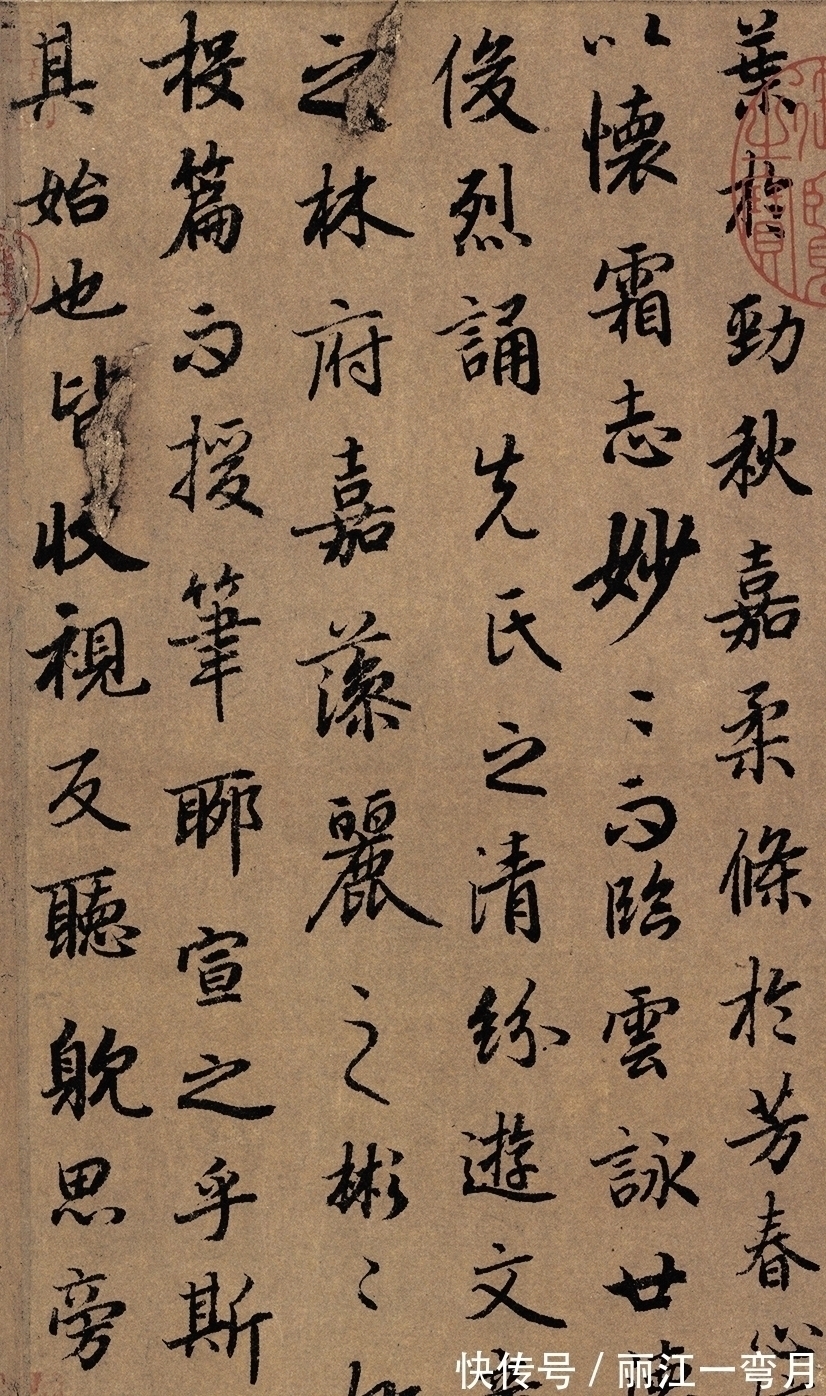 葉於勁秋嘉柔條於芳春心
以懷霜志妙〻而臨雲詠世
俊烈誦先氏之清紛遊文
之林府嘉藻麗之彬〻
投篇而援筆聊宣之乎斯
其始也皆收視反聽躭思旁
快传号 / 丽江一弯月